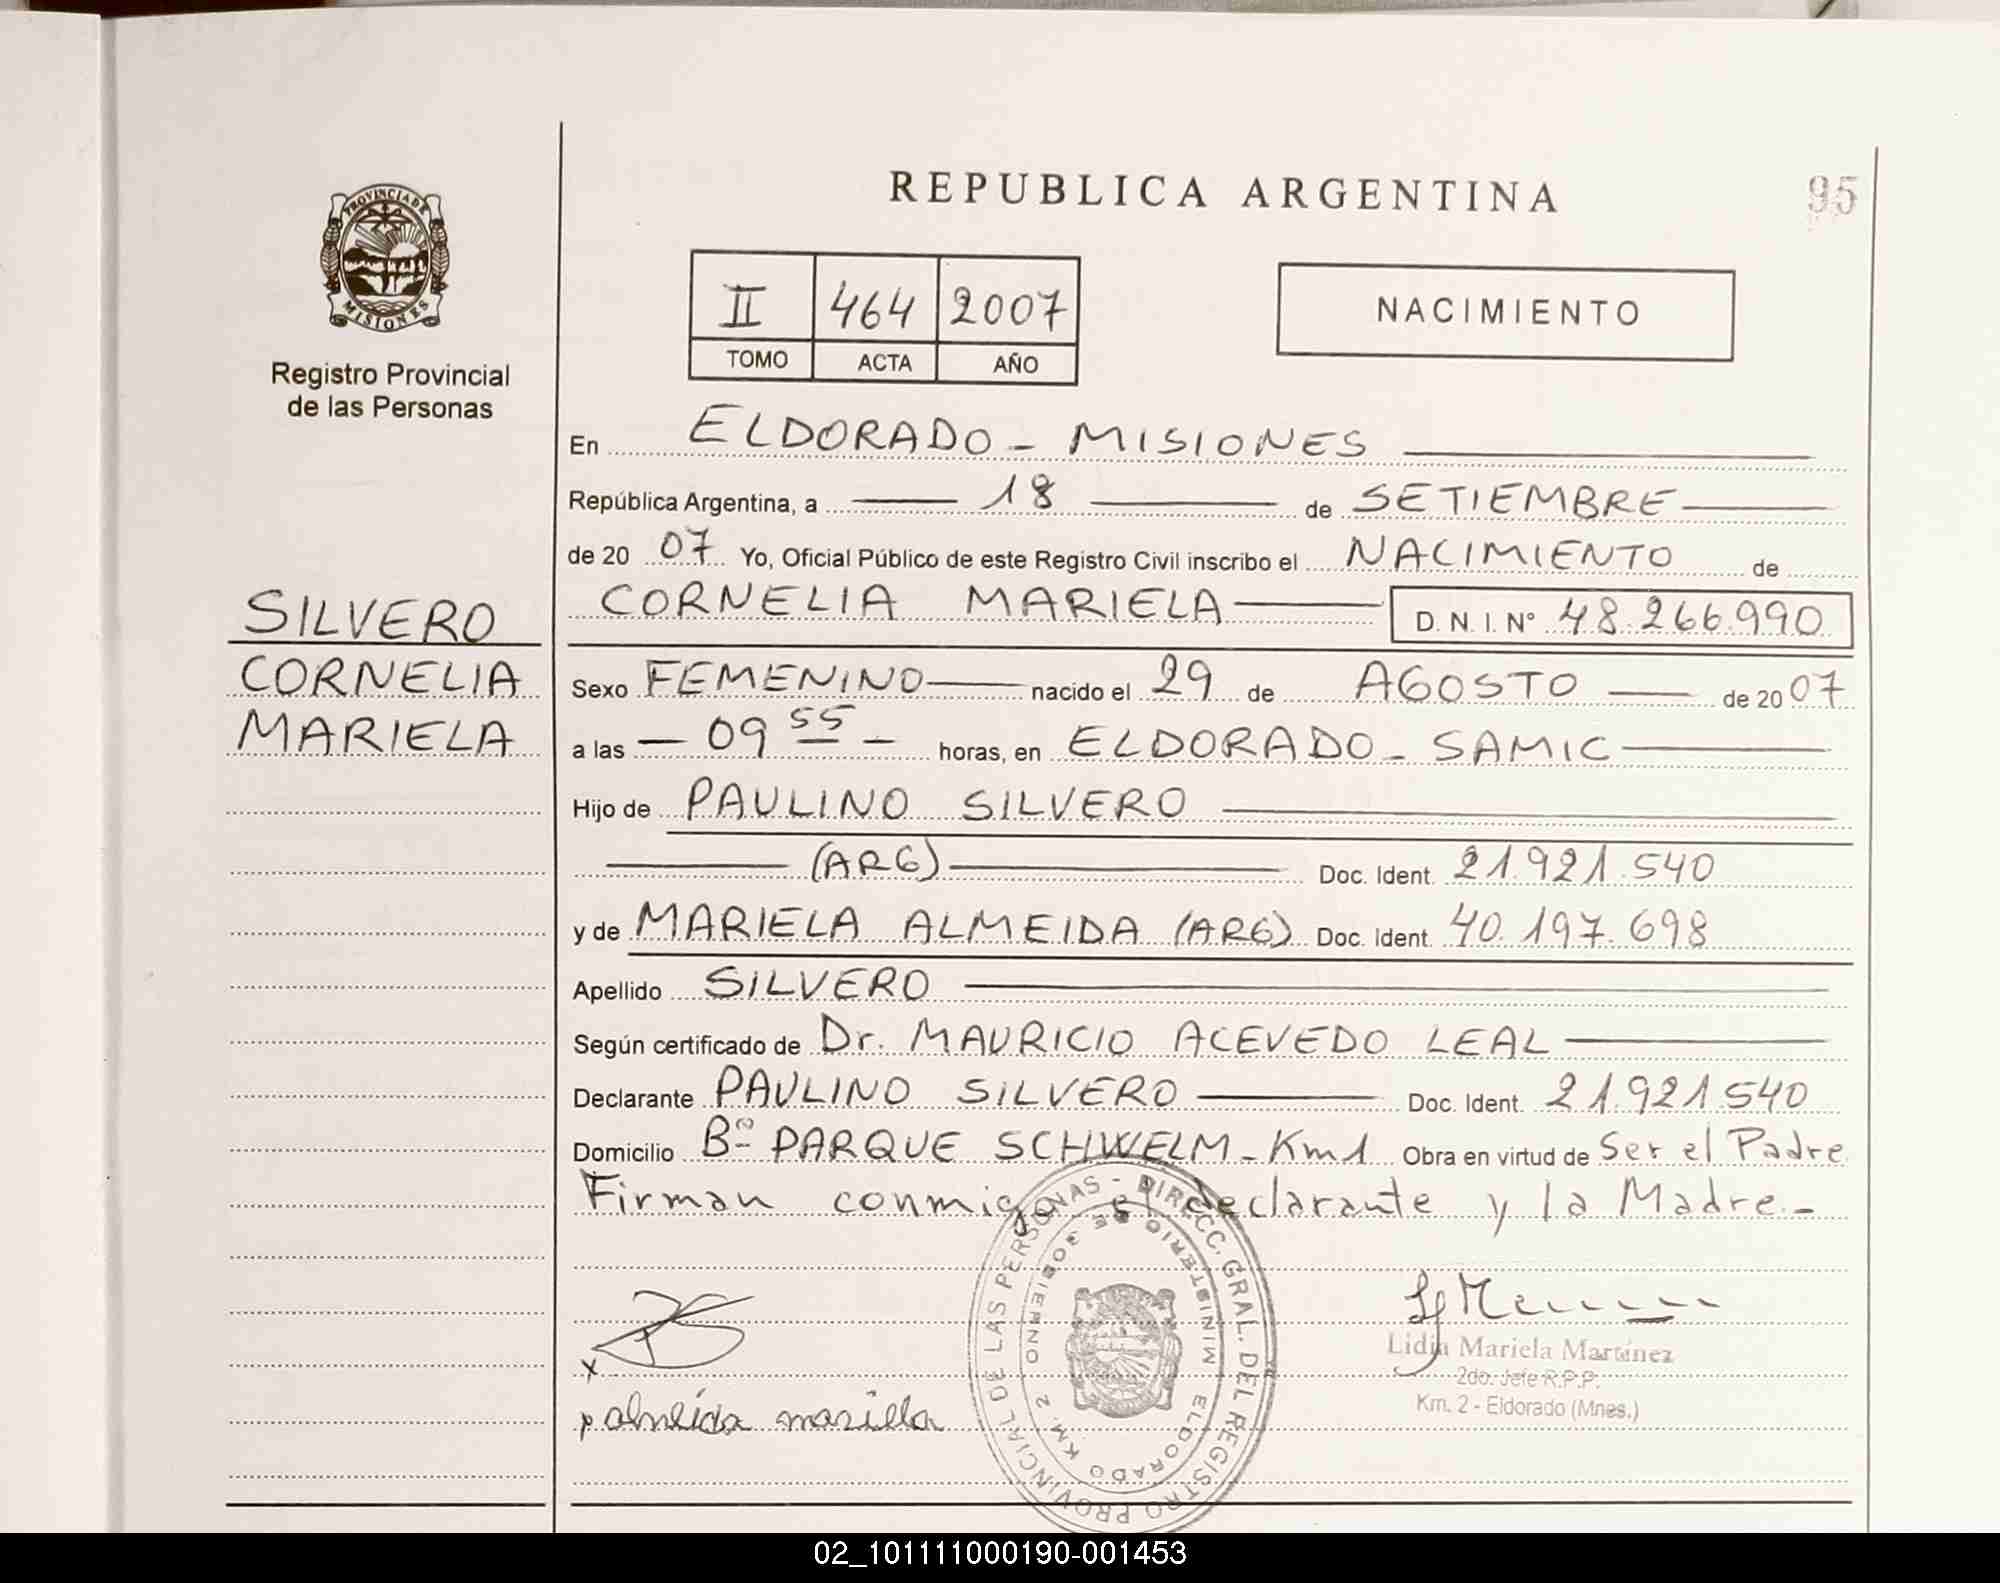 REPUBLICA ARGENTINA
95
PROVINCIA DE
MISIONES
Registro Provincial
de las Personas
II 464 2007
TOMO ACTA AÑO
NACIMIENTO
En ELDORADO - MISIONES
República Argentina, a 18 de SETIEMBRE
de 20 07 Yo, Oficial Público de este Registro Civil inscribo el NACIMIENTO de
CORNELIA MARIELA D. N. I. Nº 48.266.990
SILVERO
CORNELIA
MARIELA
Sexo FEMENINO nacido el 29 de AGOSTO de 20 07
a las - 09 55 - horas, en ELDORADO - SAMIC
Hijo de PAULINO SILVERO
(ARG) Doc. Ident. 21.921.540
y de MARIELA ALMEIDA (ARG) Doc. Ident. 40.197.698
Apellido SILVERO
Según certificado de Dr. MAURICIO ACEVEDO LEAL
Declarante PAULINO SILVERO Doc. Ident. 21.921.540
Domicilio Bº PARQUE SCHWELM - Km 1 Obra en virtud de Ser el Padre
Firman conmigo el declarante y la Madre.-
REGISTRO PROVINCIAL DE LAS PERSONAS - DIRECC. GRAL. DEL
MINISTERIO DE GOBIERNO
KM. 2 ELDORADO
x
almeida mariela
Lidia Mariela Martínez
2do. Jefe R.P.P.
Km. 2 - Eldorado (Mnes.)
02_101111000190-001453